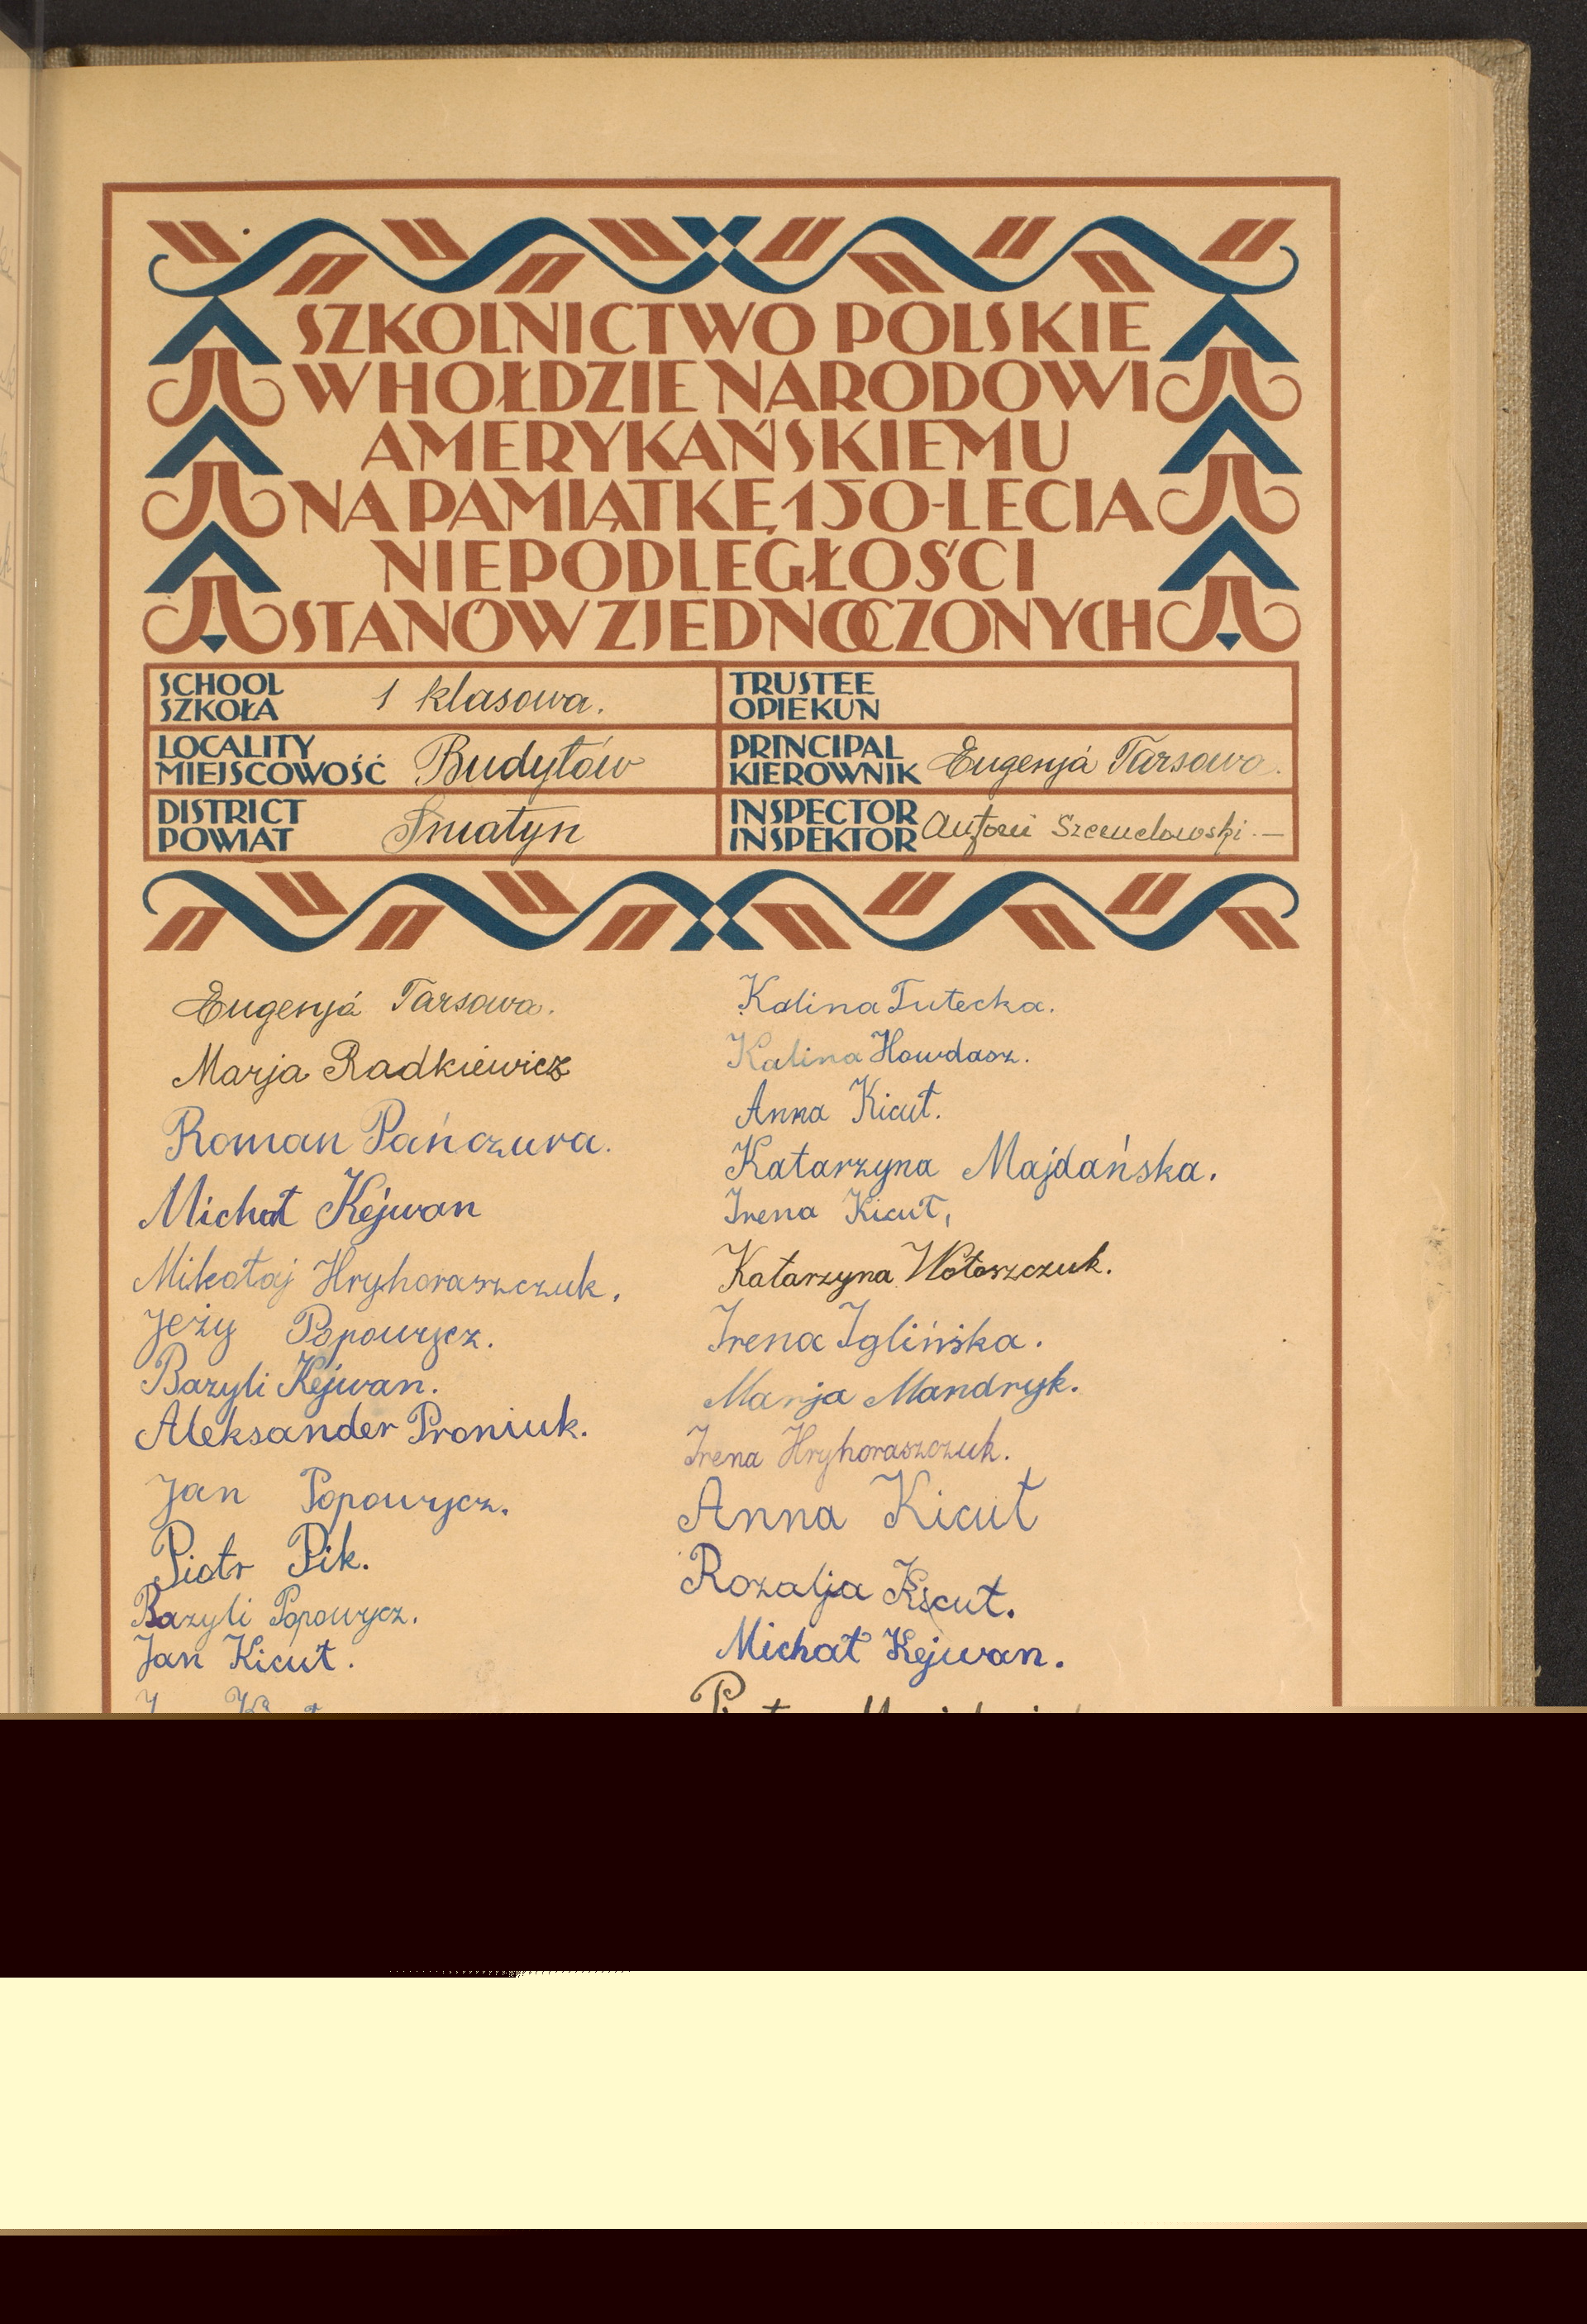 SZKOLNICTWO POLSKIE
W HOŁDZIE NARODOWI
AMERYKAŃSKIEMU
NA PAMIĄTKĘ 150-LECIA
NIEPODLEGŁOŚCI
STANÓW ZJEDNOCZONYCH
SCHOOL
SZKOŁA
1 klasowa.
TRUSTEE
OPIEKUN
LOCALITY
MIEJSCOWOŚĆ
Budyłów
PRINCIPAL
KIEROWNIK
Eugenja Tarsowa.
DISTRICT
POWIAT
Śniatyn
INSPECTOR
INSPEKTOR
Antoni
Eugenja Tarsowa.
Marja Radkiewicz
Roman Pańczura.
Michał Kejwan
Mikołaj Hryhoraszczuk.
Jeży Popowycz.
Bazyli Kejwan.
Aleksander Proniuk.
Jan Popowycz.
Piotr Pik.
Bazyli Popowycz.
Jan Kicut.
Kalina Tutecka.
Kalina Howdasz.
Anna Kicut.
Katarzyna Majdańska.
Irena Kicut,
Katarzyna Wołoszczuk.
Irena Iglińska.
Marja Mandryk.
Irena Hryhoraszczuk.
Anna Kicut
Rozalja Kicut.
Michał Kejwan.